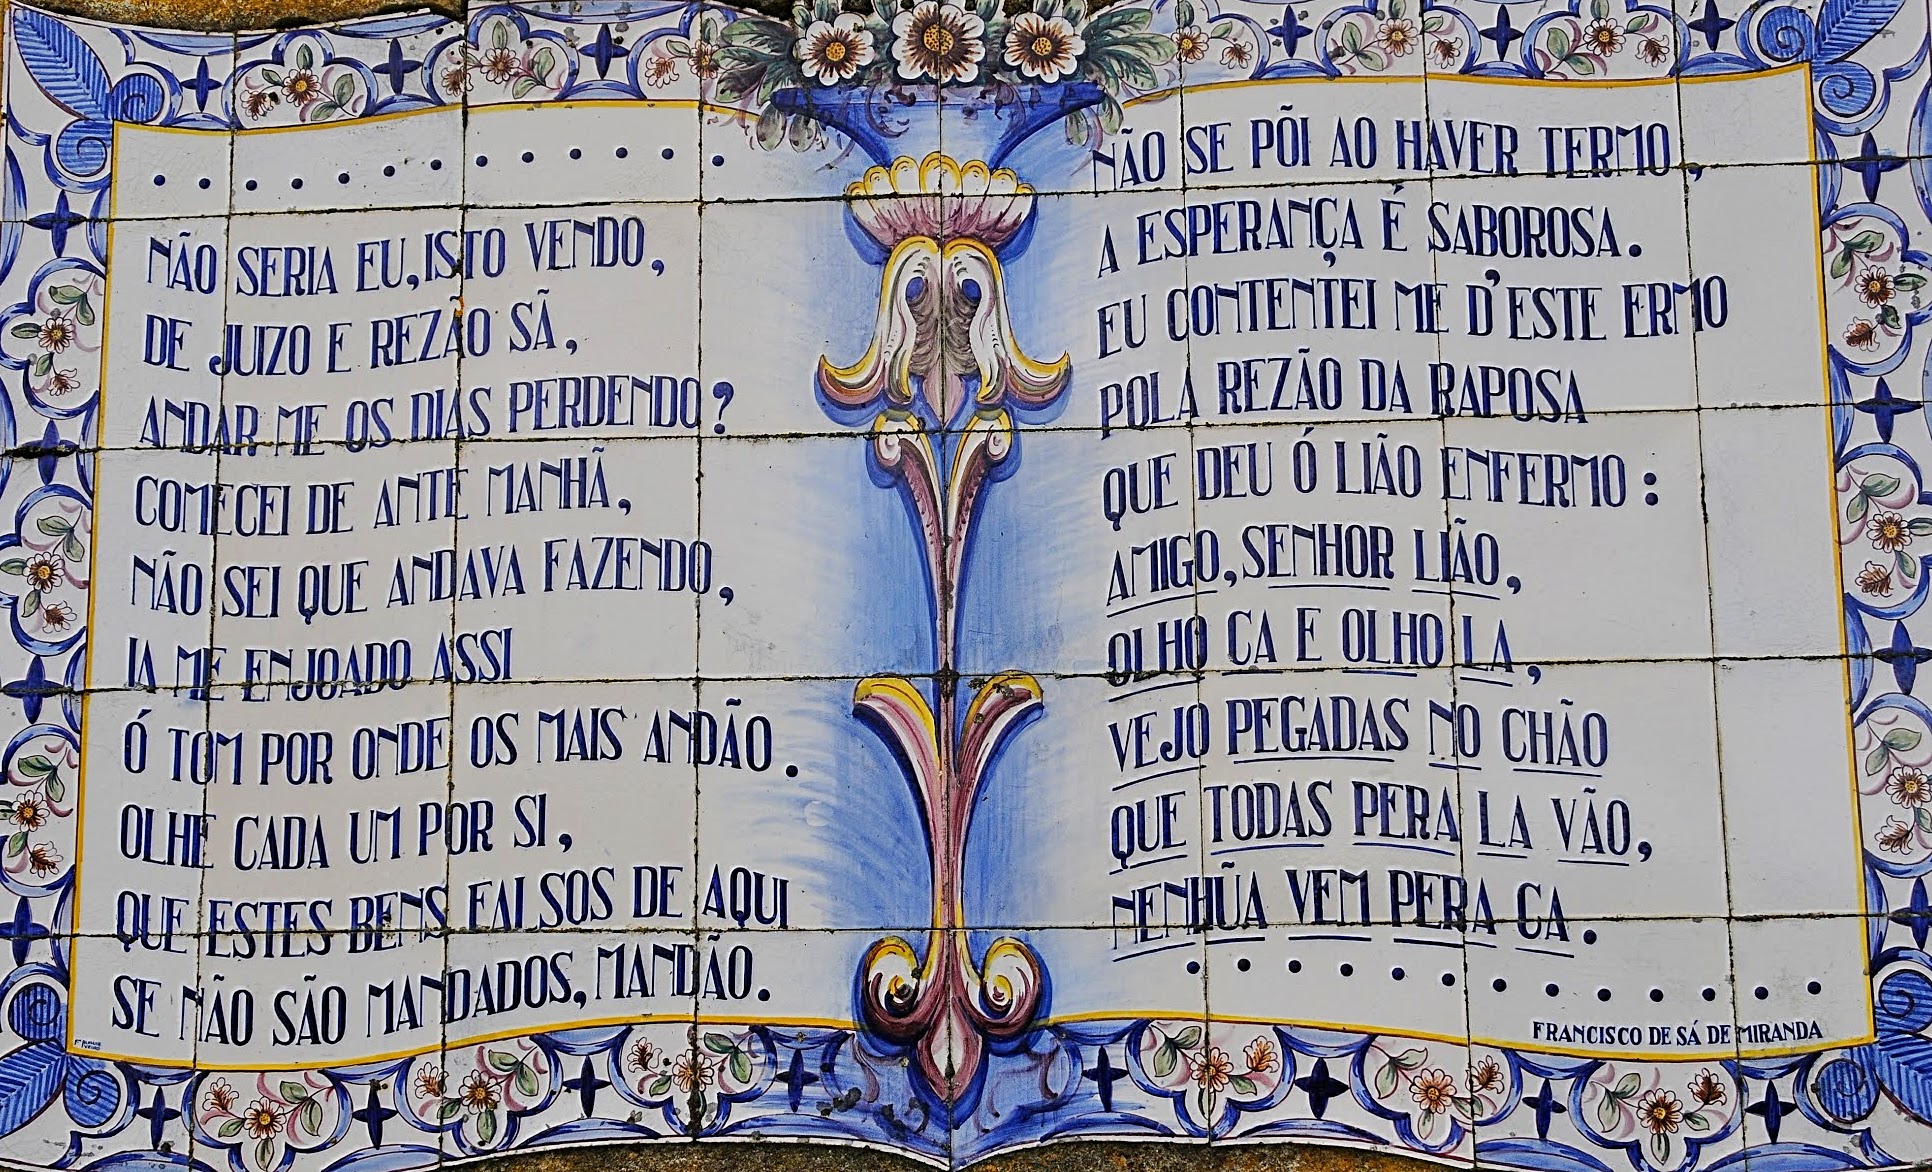 . . . . . . . . . . . . .
NÃO SERIA EU, ISTO VENDO,
DE JUIZO E REZÃO SÃ,
ANDAR ME OS DIAS PERDENDO?
COMECEI DE ANTE MANHÃ,
NÃO SEI QUE ANDAVA FAZENDO,
IA ME ENJOADO ASSI
Ó TOM POR ONDE OS MAIS ANDÃO.
OLHE CADA UM POR SI,
QUE ESTES BENS FALSOS DE AQUI
SE NÃO SÃO MANDADOS, MANDÃO.
NÃO SE PÕI AO HAVER TERMO,
A ESPERANÇA É SABOROSA.
EU CONTENTEI ME D'ESTE ERMO
POLA REZÃO DA RAPOSA
QUE DEU Ó LIÃO ENFERMO:
AMIGO, SENHOR LIÃO,
OLHO CA E OLHO LA,
VEJO PEGADAS NO CHÃO
QUE TODAS PERA LA VÃO,
NENHŨA VEM PERA CA.
. . . . . . . . . . . . .
FRANCISCO DE SÁ DE MIRANDA